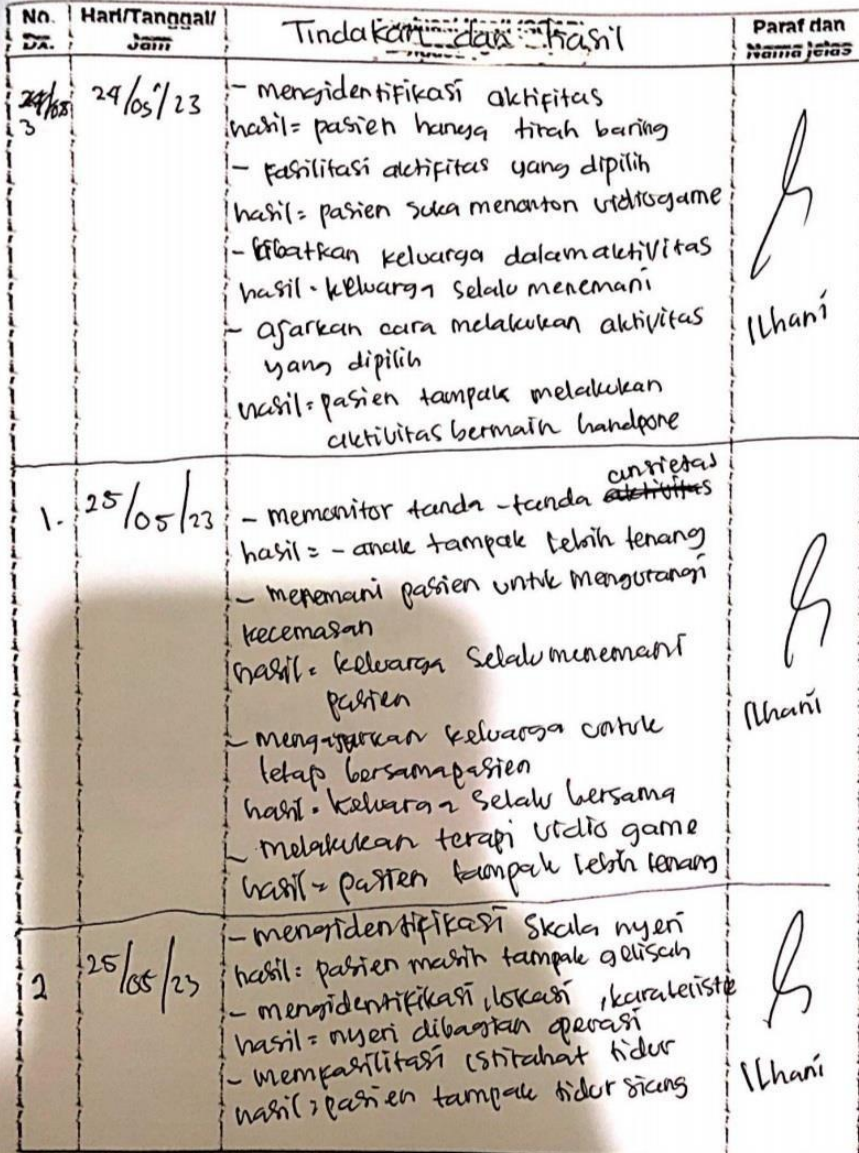 No. Dx.
Hari/Tanggal/ Jam
Tindakan dan hasil
Paraf dan Nama jelas
3
24/05/23
- mengidentifikasi aktifitas
hasil = pasien hanya tirah baring
- fasilitasi aktifitas yang dipilih
hasil = pasien suka menonton vidiogame
- libatkan keluarga dalam aktivitas
hasil = keluarga selalu menemani
- ajarkan cara melakukan aktivitas
yang dipilih
hasil = pasien tampak melakukan
aktivitas bermain handpone
Ilhani
1.
25/05/23
ansietas
- memonitor tanda - tanda aktivitas
hasil = - anak tampak lebih tenang
- menemani pasien untuk mengurangi
kecemasan
hasil = keluarga selalu menemani
pasien
- mengajarkan keluarga untuk
tetap bersama pasien
hasil = keluarga selalu bersama
- melakukan terapi vidio game
hasil = pasien tampak lebih tenang
Ilhani
2
25/05/23
- mengidentifikasi skala nyeri
hasil = pasien masih tampak gelisah
- mengidentifikasi, lokasi, karateriste
hasil = nyeri dibagian operasi
- mempasilitasi istirahat tidur
hasil = pasien tampak tidur siang
Ilhani